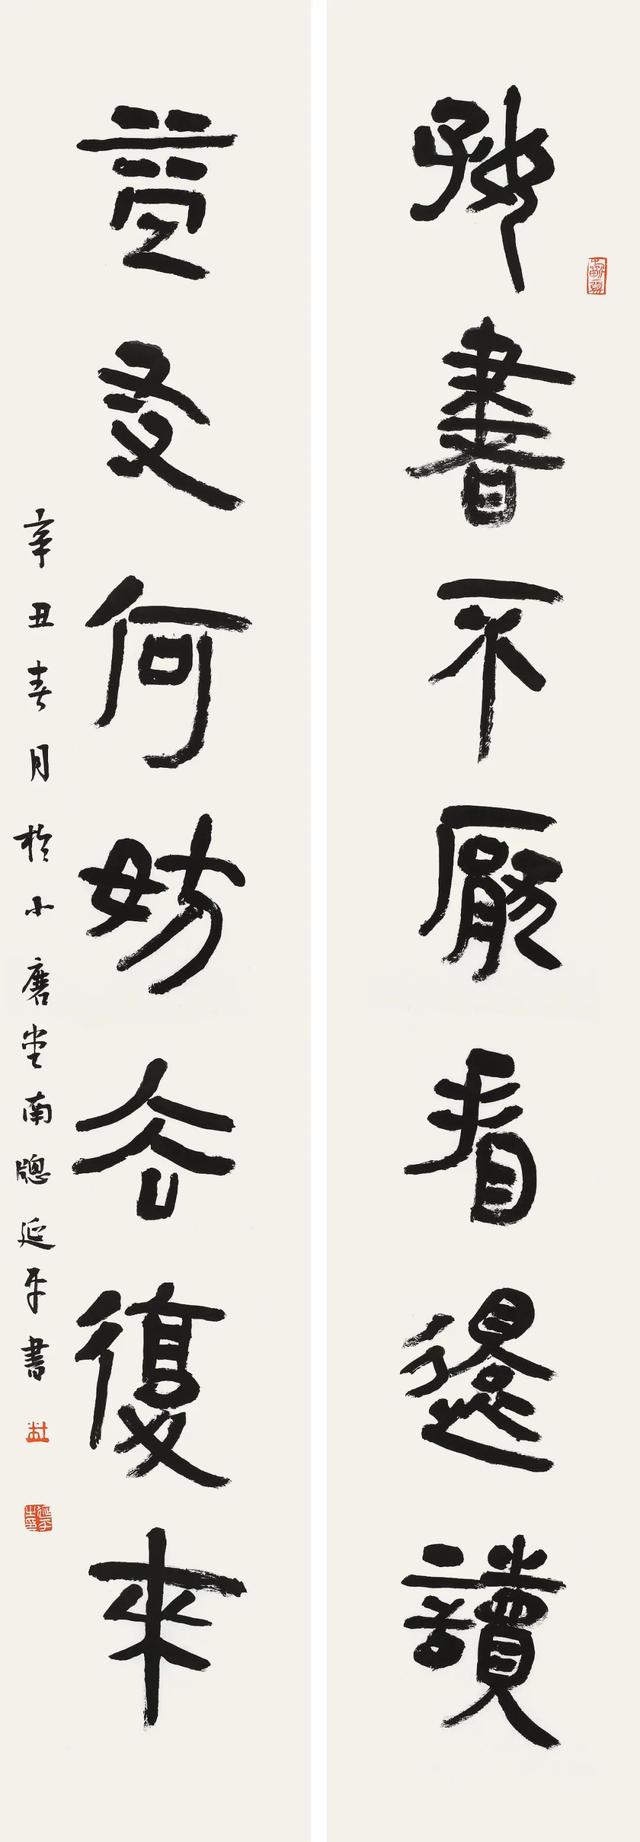 好書不厭看還讀
益友何妨去復來
辛丑春月於小磨堂南牕延平書